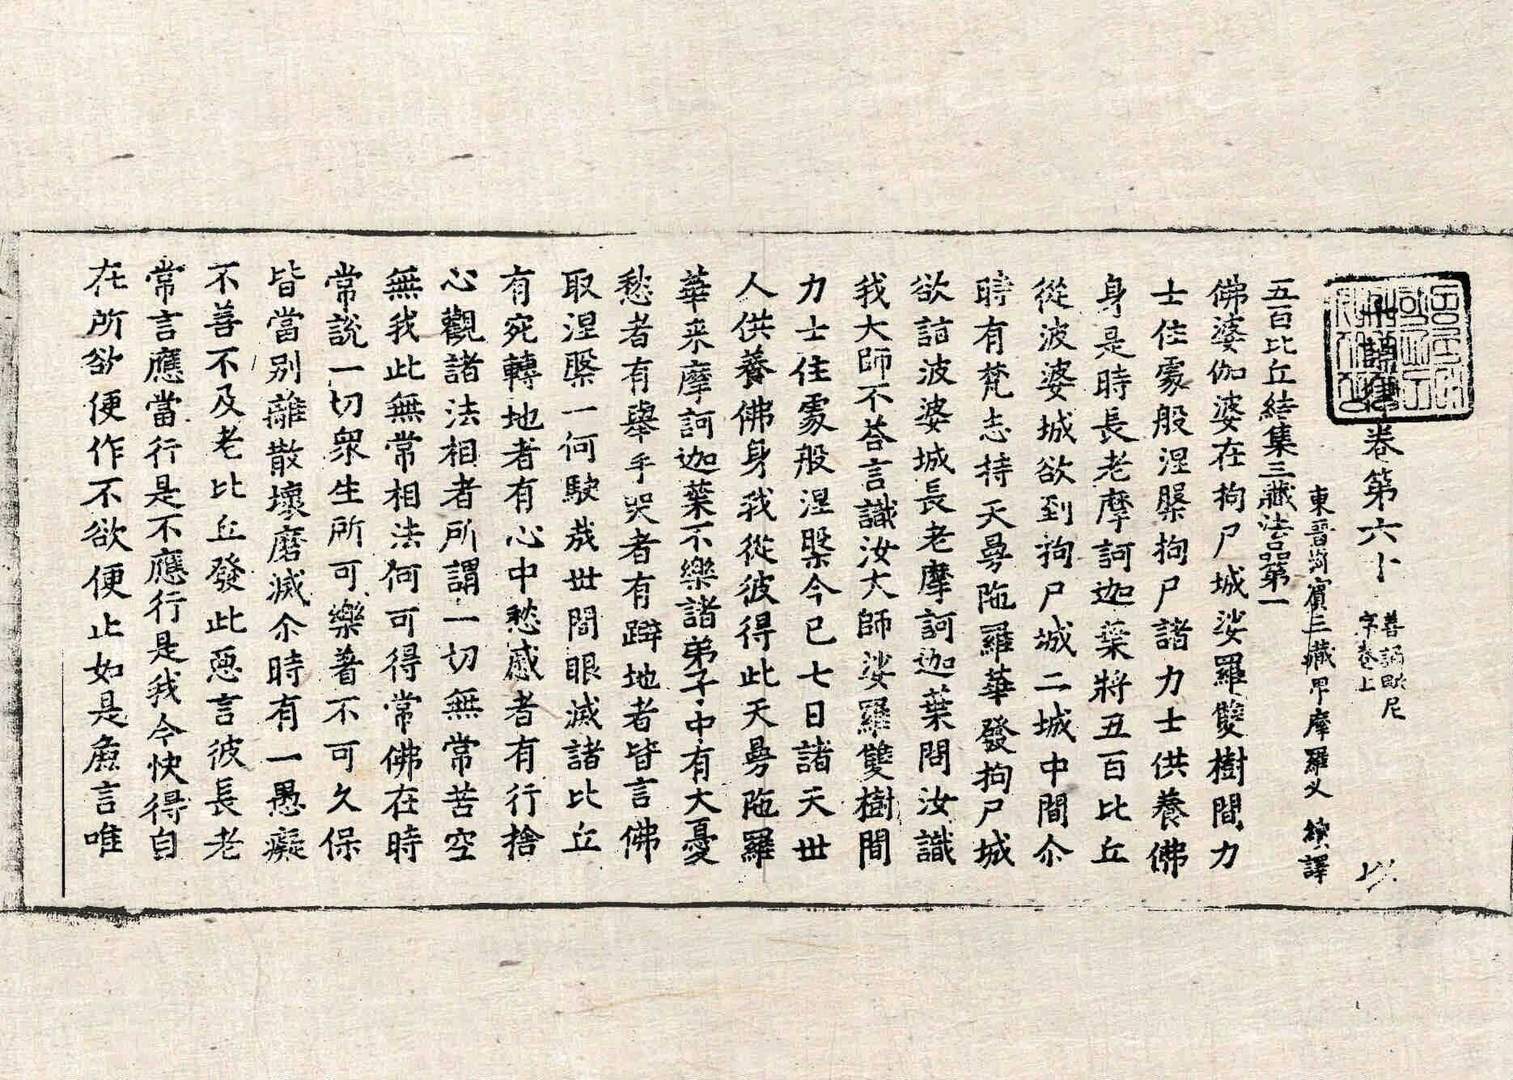 卷第六十
善誦毗尼
序卷上
東晉罽賓三藏卑摩羅叉續譯
五百比丘結集三藏法品第一
佛婆伽婆在拘尸城娑羅雙樹間力
士住處般涅槃拘尸諸力士供養佛
身是時長老摩訶迦葉將五百比丘
從波婆城欲到拘尸城二城中間尒
時有梵志持天曼陁羅華發拘尸城
欲詣波婆城長老摩訶迦葉問汝識
我大師不荅言識汝大師娑羅雙樹間
力士住處般涅槃今已七日諸天世
人供養佛身我從彼得此天曼陁羅
華来摩訶迦葉不樂諸弟子中有大憂
愁者有舉手哭者有躃地者皆言佛
取涅槃一何駛哉世間眼滅諸比丘
有宛轉地者有心中愁慼者有行捨
心觀諸法相者所謂一切無常苦空
無我此無常相法何可得常佛在時
常說一切衆生所可樂著不可久保
皆當別離散壞磨滅尒時有一愚癡
不善不及老比丘發此惡言彼長老
常言應當行是不應行是我今快得自
在所欲便作不欲便止如是麁言唯